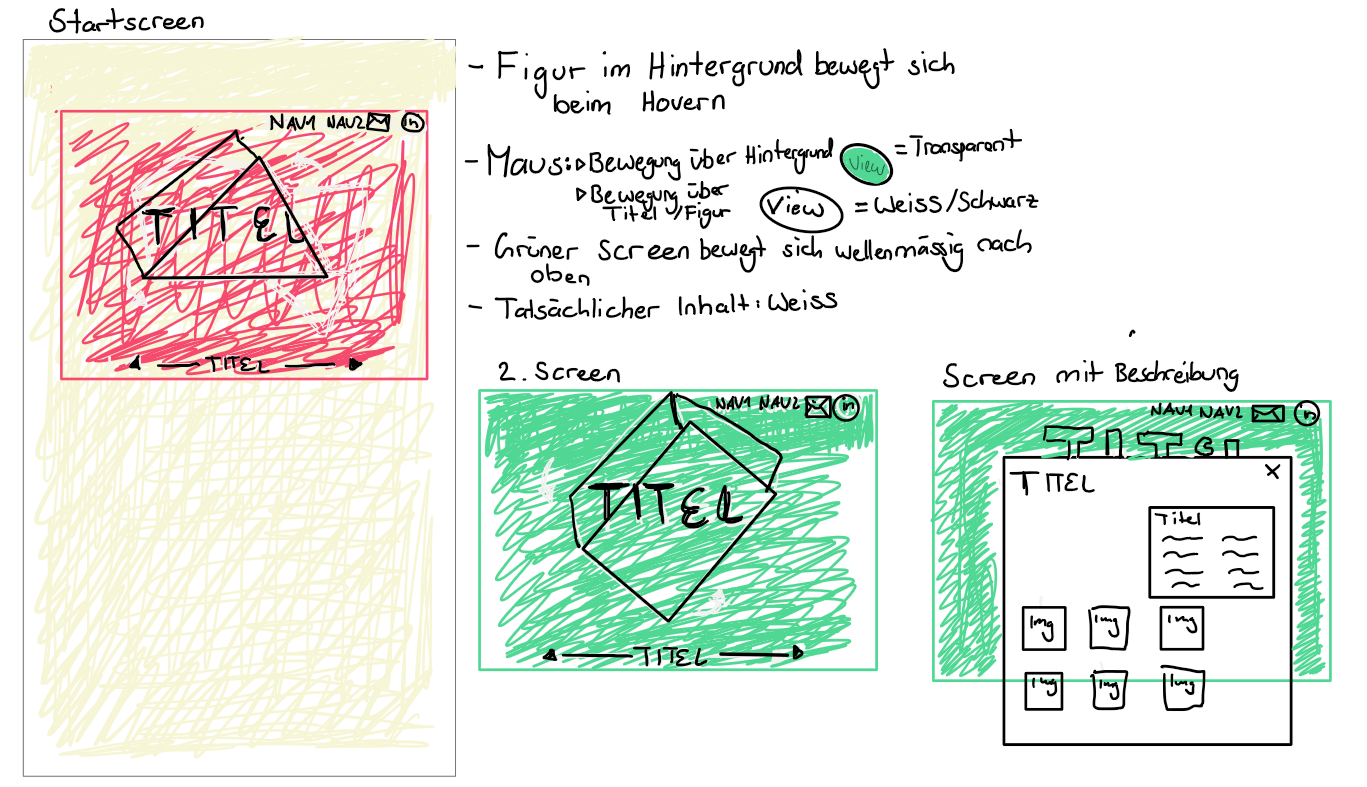 Startscreen
NAV1 NAV2 in
TITEL
TITEL
- Figur im Hintergrund bewegt sich
beim Hovern
- Maus: Bewegung über Hintergrund View = Transparent
Bewegung über
Titel / Figur View = Weiss/Schwarz
- Grüner Screen bewegt sich wellenmässig nach
oben
- Tatsächlicher Inhalt: Weiss
2. Screen
NAV1 NAV2 in
TITEL
TITEL
Screen mit Beschreibung
NAV1 NAV2 in
TITEL X
Titel
Img Img Img
Img Img Img